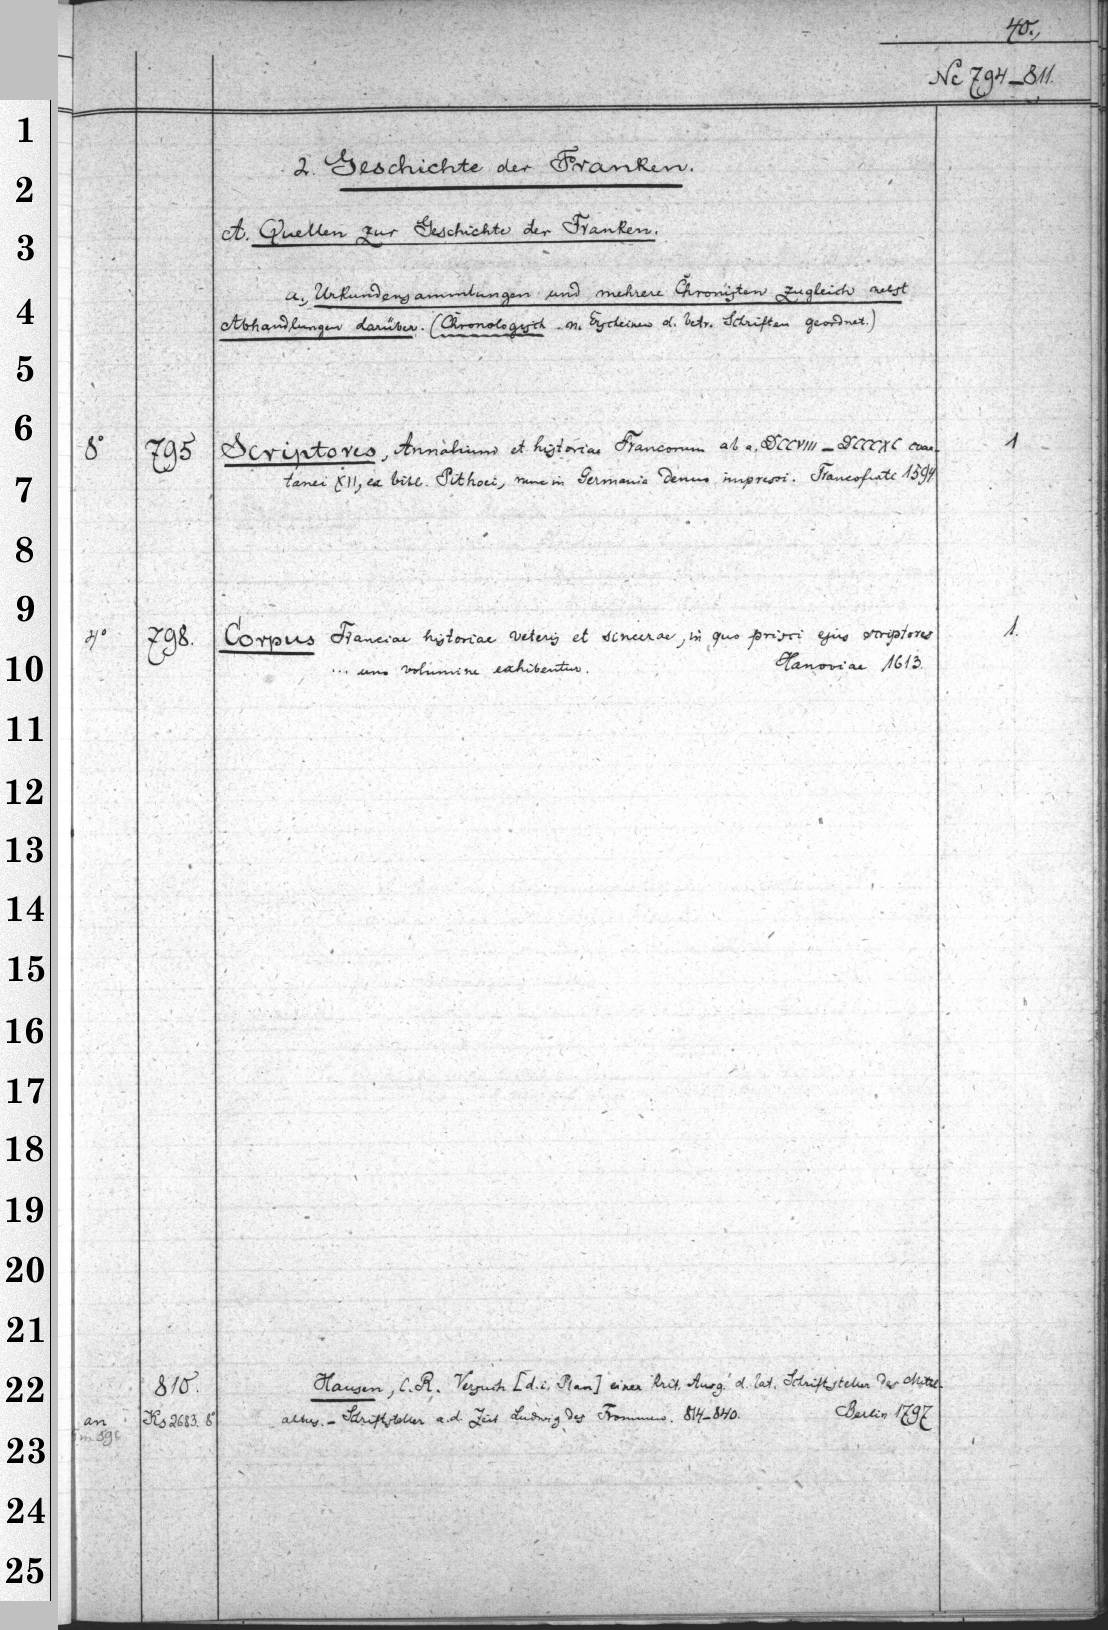 40.,
Nc 794–811.
1
2. Geschichte der Franken.
2
3
A. Quellen zur Geschichte der Franken.
4
a., Urkundensammlungen und mehrere Chronisten zugleich nebst
Abhandlungen darüber. (Chronologisch n. Erscheinen d. betr. Schriften geordnet.)
5
6
8° 795 Scriptores, Annalium et historiae Francorum ab a. DCCVIII – DCCCXC coae- 1
7
tanei XII, ex bibl. Pithoei, nunc in Germania denuo impressi. Francofurti 1594
8
9
4° 798. Corpus Franciae historiae veteris et sincerae, in quo prisci ejus scriptores 1.
10
... uno volumine exhibentur. Hanoviae 1613.
11
12
13
14
15
16
17
18
19
20
21
22
810. Hausen, C. R. Versuch [d. i. Plan] einer krit. Ausg. d. lat. Schriftsteller des Mittel-
an Ks 2683. 8° alters. – Schriftsteller a. d. Zeit Ludwig des Frommen. 814–840. Berlin 1797
23
24
25